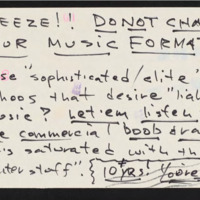 EEZE!! DO NOT CHA
UR MUSIC FORMAT
se "sophisticated/elite"
hoos that desire "ligh
usic? Let em listen
e commercial/boob dra
is saturated with th
ter stuff". {10 YRS! You're